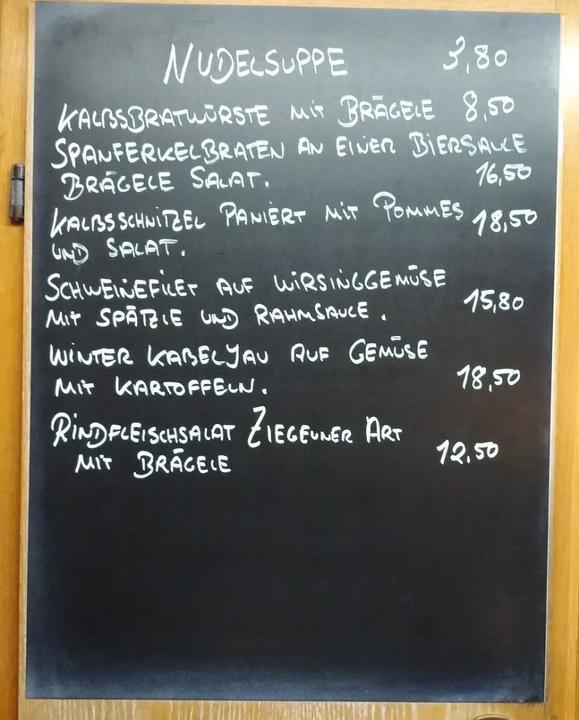 NUDELSUPPE 3,80
KALBSBRATWÜRSTE MIT BRÄGELE 8,50
SPANFERKELBRATEN AN EINER BIERSAUCE
BRÄGELE SALAT. 16,50
KALBSSCHNITZEL PANIERT MIT POMMES 18,50
UND SALAT.
SCHWEINEFILET AUF WIRSINGGEMÜSE
MIT SPÄTZLE UND RAHMSAUCE. 15,80
WINTER KABELJAU AUF GEMÜSE
MIT KARTOFFELN. 18,50
RINDFLEISCHSALAT ZIEGEUNER ART
MIT BRÄGELE 12,50